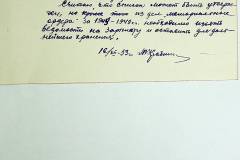 Считаю, что список может быть утверж-
ден, но кроме того из дел мемориальные
ордера за 1948-1949 г. необходимо изъять
ведомости на зарплату и оставить для даль-
нейшего хранения.
16/VI-53г.